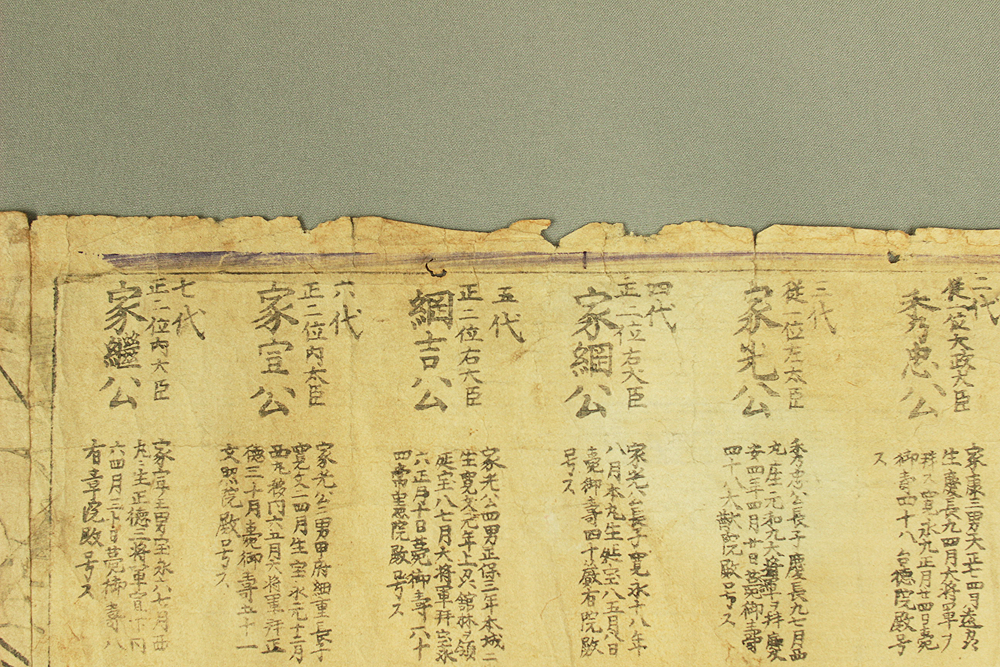 二代
従一位太政大臣
秀忠公
家康三男天正七四月
生慶長九四月大将軍ヲ
拝ス寛永九正月廿四日薨
御壽四十八台徳院殿号
ス
三代
従一位左大臣
家光公
秀忠公長子慶長九七月西
丸座元和九大将軍ヲ拝慶
安四年四月廿日薨御壽
四十八大猷院殿号ス
四代
正二位右大臣
家綱公
家光公長子寛永十八年
八月本丸生延宝八五月八日
薨御壽四十厳有院殿
号ス
五代
正二位右大臣
綱吉公
家光公四男正保三年本城ニ
生寛文元年上刕舘林ヲ領
延宝八七月大将軍拝宝永
六正月十日薨御壽六十
四常憲院殿号ス
六代
正二位内大臣
家宣公
家光公三男甲府綱重長子
寛文二四月生宝永元十二月
西丸移同六五月大将軍拝正
徳三十月薨御壽五十一
文照院殿号ス
七代
正二位内大臣
家継公
家宣三男宝永六七月西
丸ニ生正徳三将軍宣下同
六四月三十日薨御壽八
有章院殿号ス